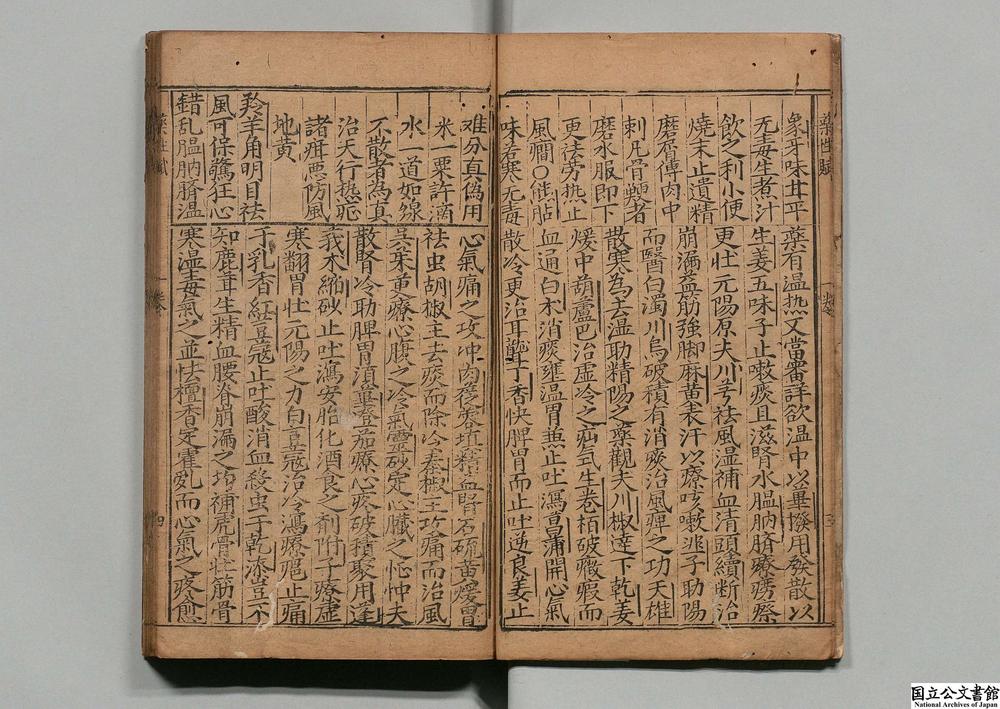 藥性賦
一卷
三
象牙味甘平
无毒生煮汁
飲之利小便
燒末止遺精
磨屑傅肉中
刺凡骨鯁者
磨水服即下
更法旁热止
風癇○能
味苦寒无毒
藥有温热又當審詳欲温中以蓽撥用發散以
生姜五味子止嗽痰且滋腎水腽肭臍療癆瘵
更壮元陽原夫川芎祛風湿補血清頭續断治
崩漏益筋強脚麻黄表汗以療咳嗽韭子助陽
而醫白濁川烏破積有消痰治風痺之功天雄
散寒為去湿助精陽之藥觀夫川椒達下乾姜
煖中葫蘆巴治虚冷之疝気生卷栢破癥瘕而
血通白术消痰壅温胃兼止吐瀉菖蒲開心氣
散冷更治耳聾丁香快脾胃而止吐逆良姜止
难分真偽用
米一粟許滴
水一道如線
不散者為真
治天行热
諸疽悪防風
地黄
羚羊角明目祛
風可保驚狂心
錯乱腽肭臍温
心氣痛之攻冲肉蓯蓉填精益腎石硫黄煖胃
祛虫胡椒主去痰而除冷秦椒主攻痛而治風
吴茱萸療心腹之冷氣靈砂定心臟之怔忡夫
散腎冷助脾胃湏蓽澄茄療心疼破積聚用蓬
莪术縮砂止吐瀉安胎化酒食之剤附子療虚
寒翻胃壮元陽之力白荳蔻治冷瀉療癰止痛
于乳香紅荳蔻止吐酸消血殺虫于乾漆豈不
知鹿茸生精血腰脊崩漏之均補虎骨壮筋骨
寒湿毒氣之並怯檀香定霍乱而心氣之疼愈
藥性賦
一卷
四
国立公文書館
National Archives of Japan